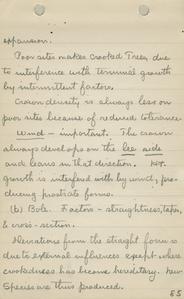 expansion.
Poor sites makes Crooked Trees, due
to interference with terminal growth
by intermittent factors.
Crown density is always less on
poor sites because of reduced tolerance.
Wind - important. The crown
always develops on the lee side
and leans in that direction. Ht.
growth is interfered with by wind, pro-
ducing prostrate forms.
(b) Bole. Factors - straightness, taper,
& cross-section.
Deviations from the straight form is
due to external influences except where
crookedness has become hereditary. New
Species are thus produced.